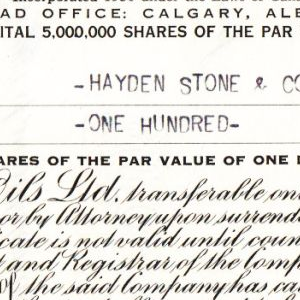 AD OFFICE: CALGARY, ALB
ITAL 5,000,000 SHARES OF THE PAR
-HAYDEN STONE & CO
-ONE HUNDRED-
ARES OF THE PAR VALUE OF ONE
Oils Ltd. transferable on
or by Attorney upon surrend
icate is not valid until coun
t and Registrar of the Comp
of the said Company has ca